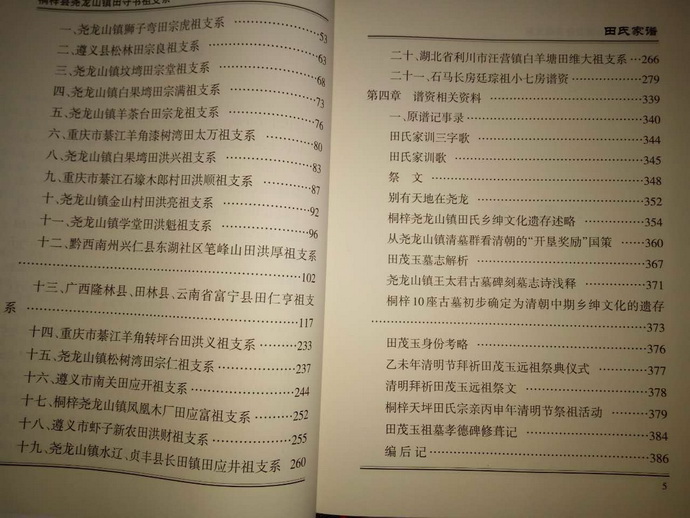 桐梓县尧龙山镇田守书祖支系
一、尧龙山镇狮子弯田宗虎祖支系 53
二、遵义县松林田宗良祖支系 63
三、尧龙山镇坟塆田宗堂祖支系 68
四、尧龙山镇白果塆田宗满祖支系 73
五、尧龙山镇羊茶台田宗龙祖支系 76
六、重庆市綦江羊角漆树湾田太万祖支系 80
八、尧龙山镇白果塆田洪兴祖支系 83
九、重庆市綦江石壕木郎村田洪顺祖支系 87
十、尧龙山镇金山村田洪亮祖支系 92
十一、尧龙山镇学堂田洪魁祖支系 96
十二、黔西南州兴仁县东湖社区笔峰山田洪厚祖支系
102
十三、广西隆林县、田林县、云南省富宁县田仁亨祖支
系 117
十四、重庆市綦江羊角转坪台田洪义祖支系 233
十五、尧龙山镇松树湾田宗仁祖支系 237
十六、遵义市南关田应开祖支系 244
十七、桐梓尧龙山镇凤凰木厂田应富祖支系 252
十八、遵义市虾子新农田洪财祖支系 255
十九、尧龙山镇水辽、贞丰县长田镇田应井祖支系 260
田氏家谱
二十、湖北省利川市汪营镇白羊塘田维大祖支系 266
二十一、石马长房廷琮祖小七房谱资 279
第四章 谱资相关资料 339
一、原谱记事录 340
田氏家训三字歌 344
田氏家训歌 345
祭 文 348
别有天地在尧龙 352
桐梓尧龙山镇田氏乡绅文化遗存述略 354
从尧龙山镇清墓群看清朝的“开垦奖励”国策 360
田茂玉墓志解析 367
尧龙山镇王太君古墓碑刻墓志诗浅释 371
桐梓10座古墓初步确定为清朝中期乡绅文化的遗存
373
田茂玉身份考略 376
乙未年清明节拜祈田茂玉远祖祭典仪式 377
清明拜祈田茂玉远祖祭文 378
桐梓天坪田氏宗亲丙申年清明节祭祖活动 379
田茂玉祖墓孝德碑修葺记 384
编后记 386
5